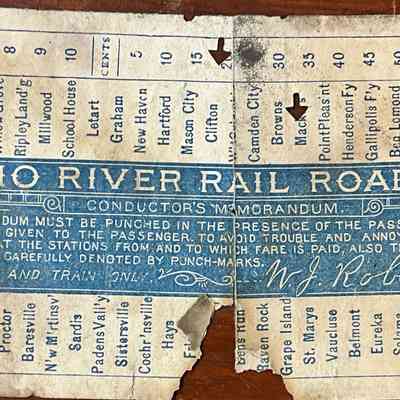 8 9 10 CENTS 5 10 15 20 25 30 35 40 45 50
Ripley Land'g
Millwood
School House
Letart
Graham
New Haven
Hartford
Mason City
Clifton
Camden City
Browns
PointPleas'nt
Henderson F'y
Gallipolis F'y
Ben Lomond
IO RIVER RAIL ROAD
CONDUCTOR'S MEMORANDUM.
DUM MUST BE PUNCHED IN THE PRESENCE OF THE PASS
GIVEN TO THE PASSENGER. TO AVOID TROUBLE AND ANNOY
AT THE STATIONS FROM AND TO WHICH FARE IS PAID, ALSO T
CAREFULLY DENOTED BY PUNCH-MARKS.
AND TRAIN ONLY. W. J. Rob
Proctor
Baresville
N'w M'rtinsv'
Sardis
Padens Vall'y
Sistersville
Cochr'nsville
Hays
Bens Run
Raven Rock
Grape Island
St. Marys
Vaucluse
Belmont
Eureka